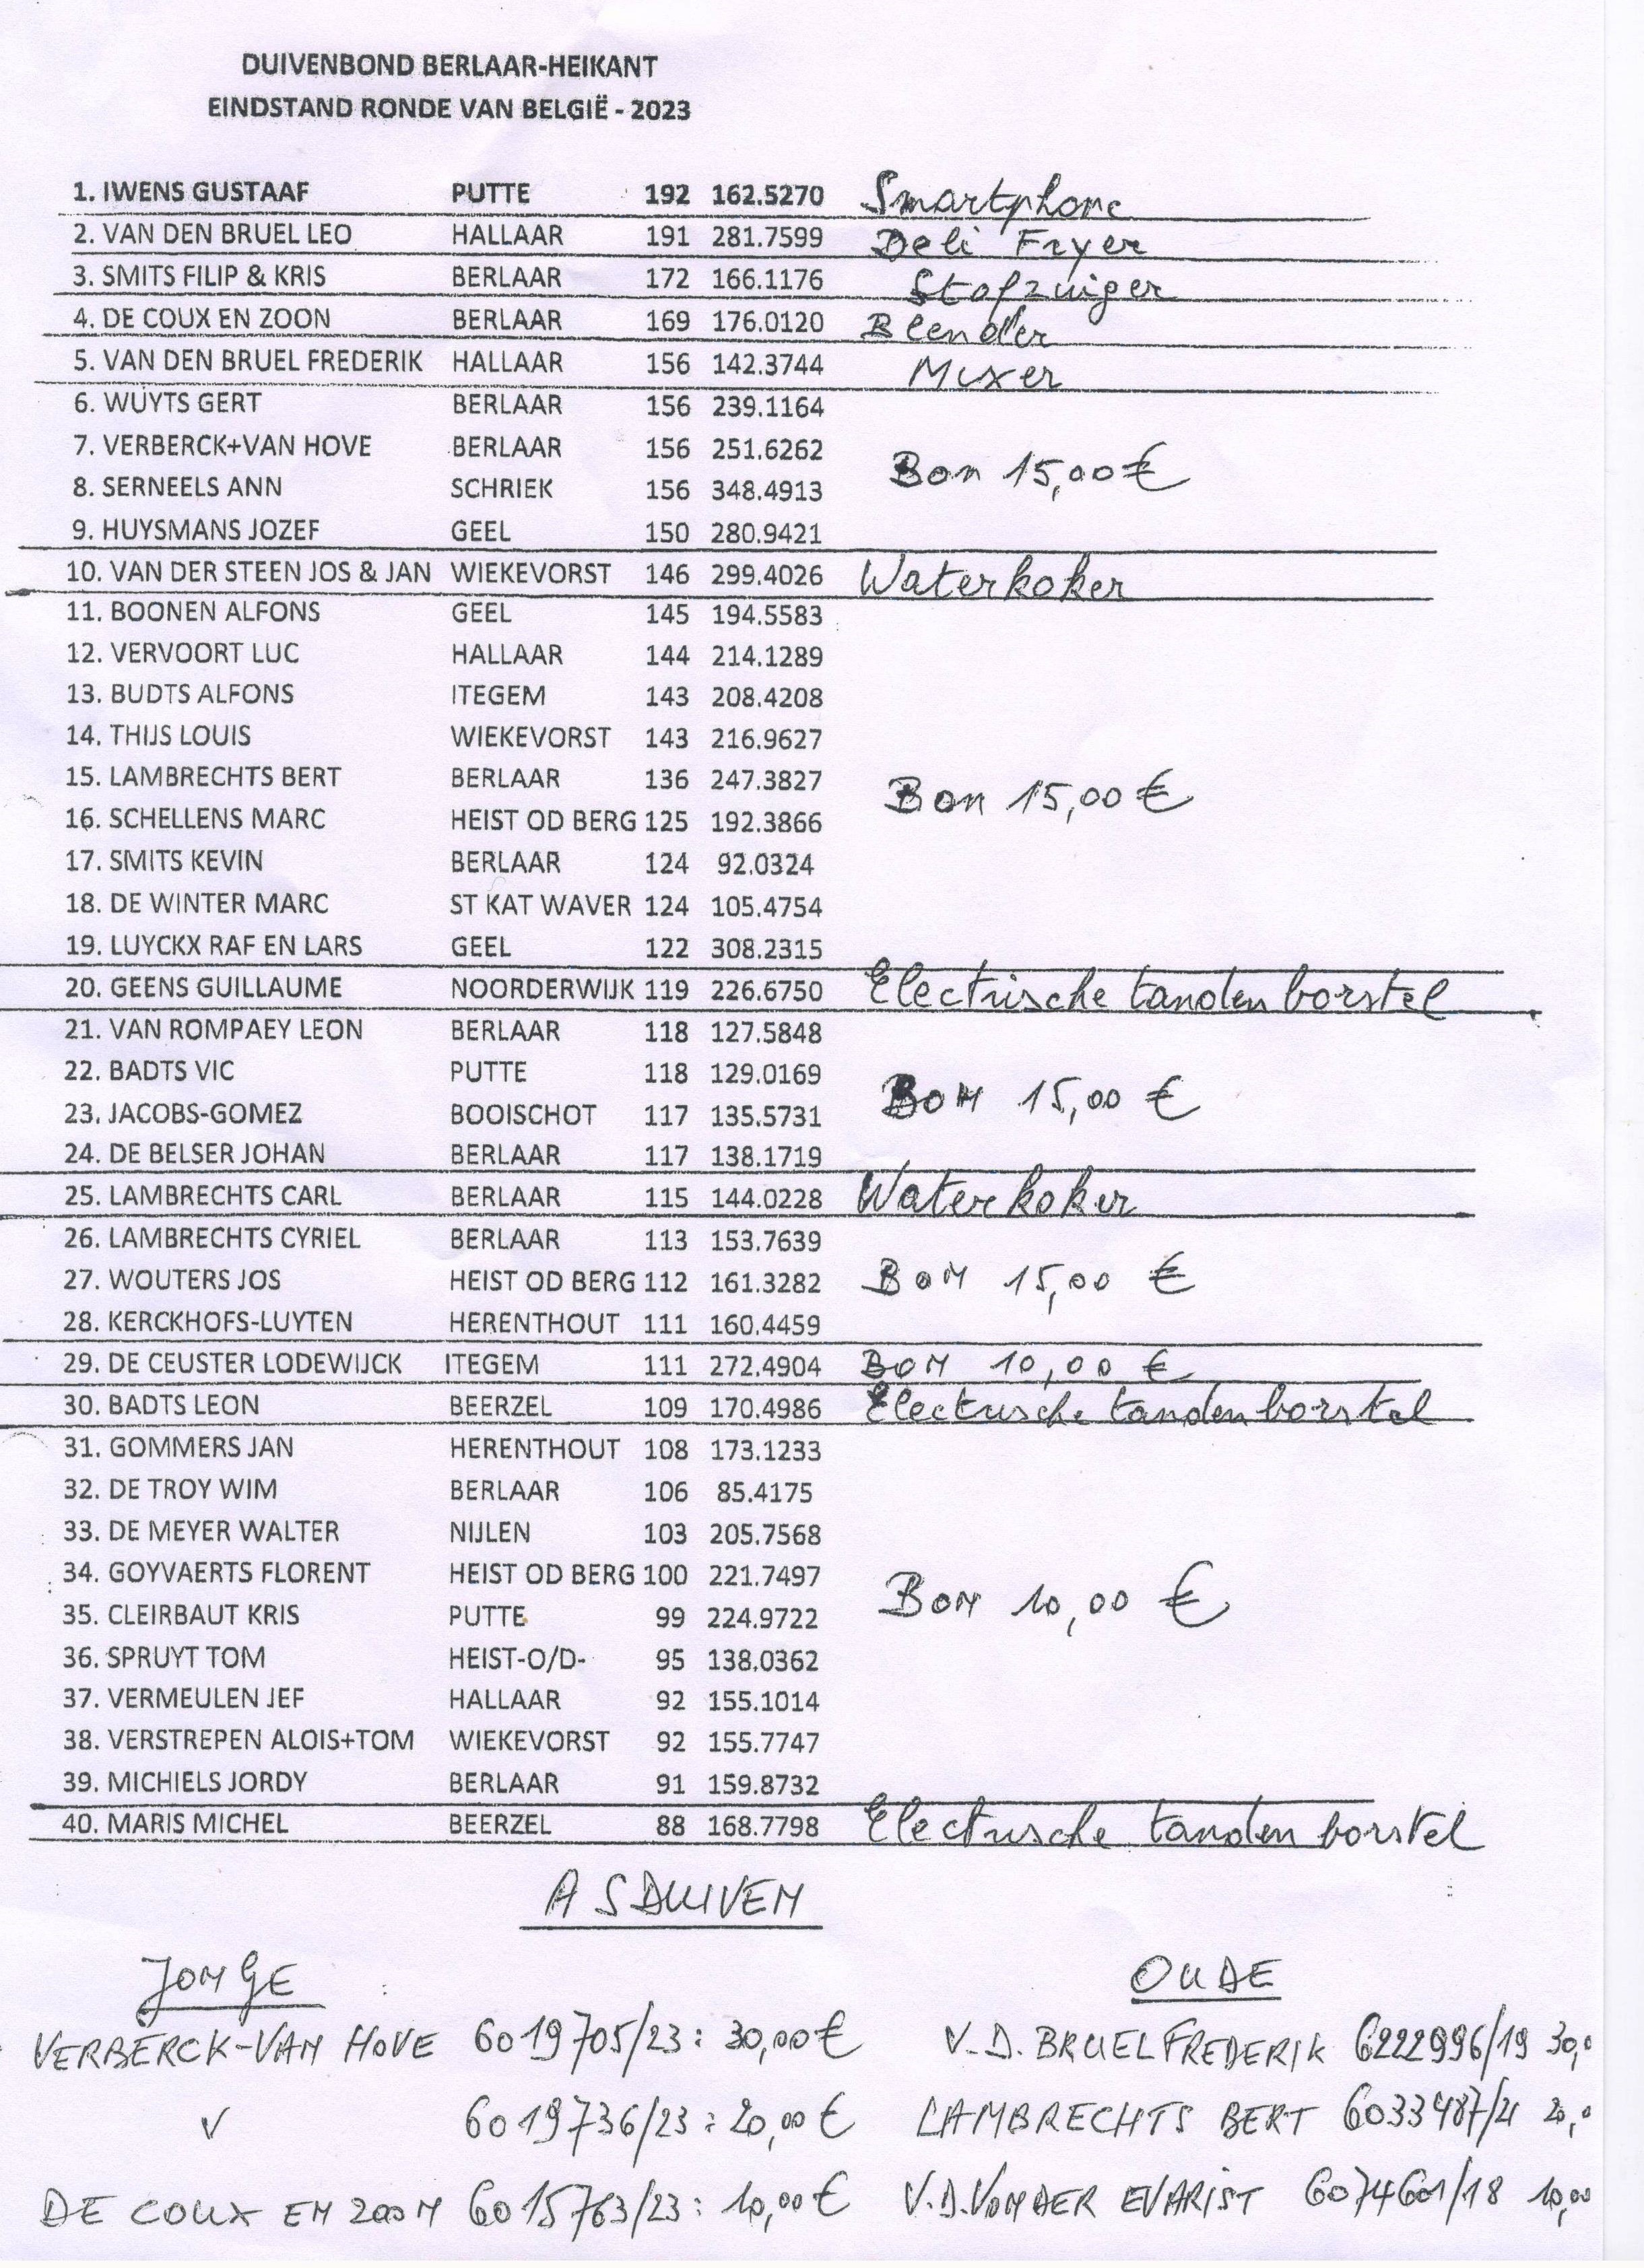 DUIVENBOND BERLAAR-HEIKANT
EINDSTAND RONDE VAN BELGIË - 2023
1. IWENS GUSTAAF PUTTE 192 162.5270 Smartphone
2. VAN DEN BRUEL LEO HALLAAR 191 281.7599 Deli Fryer
3. SMITS FILIP & KRIS BERLAAR 172 166.1176 Stofzuiger
4. DE COUX EN ZOON BERLAAR 169 176.0120 Blender
5. VAN DEN BRUEL FREDERIK HALLAAR 156 142.3744 Mixer
6. WUYTS GERT BERLAAR 156 239.1164
7. VERBERCK+VAN HOVE BERLAAR 156 251.6262
Bon 15,00 €
8. SERNEELS ANN SCHRIEK 156 348.4913
9. HUYSMANS JOZEF GEEL 150 280.9421
10. VAN DER STEEN JOS & JAN WIEKEVORST 146 299.4026 Waterkoker
11. BOONEN ALFONS GEEL 145 194.5583
12. VERVOORT LUC HALLAAR 144 214.1289
13. BUDTS ALFONS ITEGEM 143 208.4208
14. THIJS LOUIS WIEKEVORST 143 216.9627
15. LAMBRECHTS BERT BERLAAR 136 247.3827
Bon 15,00 €
16. SCHELLENS MARC HEIST OD BERG 125 192.3866
17. SMITS KEVIN BERLAAR 124 92.0324
18. DE WINTER MARC ST KAT WAVER 124 105.4754
19. LUYCKX RAF EN LARS GEEL 122 308.2315
20. GEENS GUILLAUME NOORDERWIJK 119 226.6750 Electrische tandenborstel
21. VAN ROMPAEY LEON BERLAAR 118 127.5848
22. BADTS VIC PUTTE 118 129.0169
BON 15,00 €
23. JACOBS-GOMEZ BOOISCHOT 117 135.5731
24. DE BELSER JOHAN BERLAAR 117 138.1719
25. LAMBRECHTS CARL BERLAAR 115 144.0228 Waterkoker
26. LAMBRECHTS CYRIEL BERLAAR 113 153.7639
27. WOUTERS JOS HEIST OD BERG 112 161.3282 BON 15,00 €
28. KERCKHOFS-LUYTEN HERENTHOUT 111 160.4459
29. DE CEUSTER LODEWIJCK ITEGEM 111 272.4904 BON 10,00 €
30. BADTS LEON BEERZEL 109 170.4986 Electrische tandenborstel
31. GOMMERS JAN HERENTHOUT 108 173.1233
32. DE TROY WIM BERLAAR 106 85.4175
33. DE MEYER WALTER NIJLEN 103 205.7568
34. GOYVAERTS FLORENT HEIST OD BERG 100 221.7497
BON 10,00 €
35. CLEIRBAUT KRIS PUTTE 99 224.9722
36. SPRUYT TOM HEIST-O/D- 95 138.0362
37. VERMEULEN JEF HALLAAR 92 155.1014
38. VERSTREPEN ALOIS+TOM WIEKEVORST 92 155.7747
39. MICHIELS JORDY BERLAAR 91 159.8732
40. MARIS MICHEL BEERZEL 88 168.7798 Electrische tandenborstel
ASDUIVEN
JONGE
VERBERCK-VAN HOVE 6019705/23: 30,00 €
v 6019736/23: 20,00 €
DE COUX EN ZOON 6015763/23: 10,00 €
OUDE
V.D.BRUEL FREDERIK 6222996/19 30,0
LAMBRECHTS BERT 6033487/21 20,0
V.D.VONDER EVARIST 6074601/18 10,00